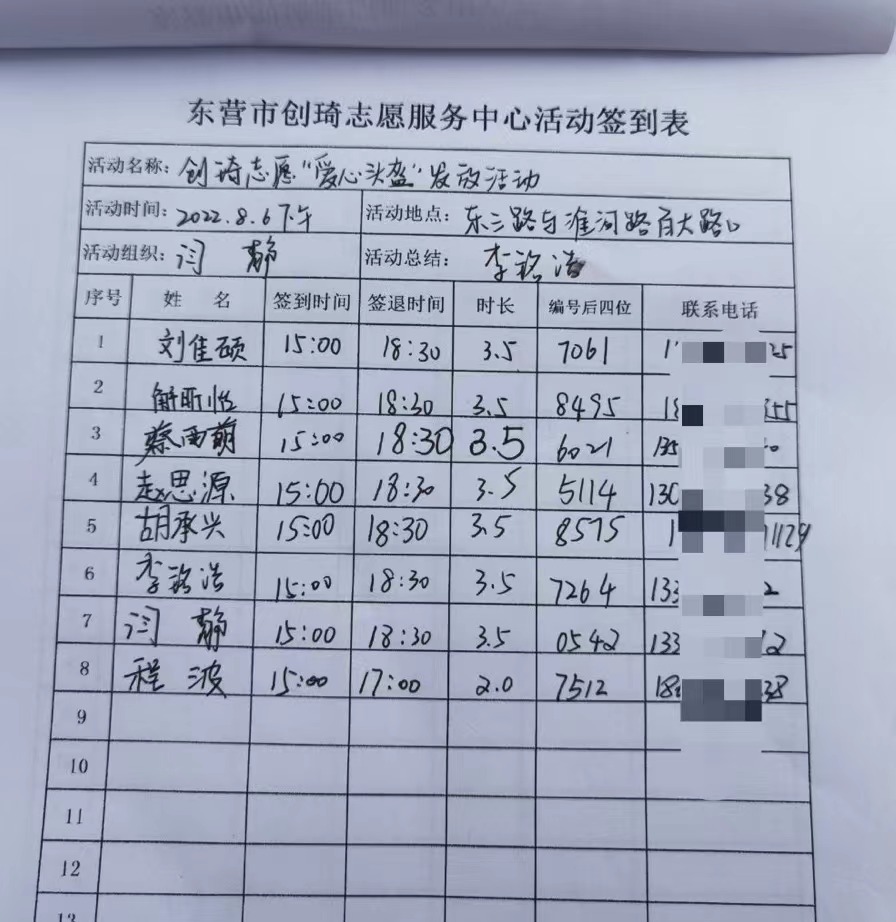 东营市创琦志愿服务中心活动签到表
活动名称：创琦志愿“爱心头盔”发放活动
活动时间：2022.8.6下午 活动地点：东三路与淮河路百大路口
活动组织：闫 静 活动总结：李铭浩
序号 姓 名 签到时间 签退时间 时长 编号后四位 联系电话
1 刘佳硕 15:00 18:30 3.5 7061 1 25
2 解昕 15:00 18:30 3.5 8495 18 355
3 蔡雨萌 15:00 18:30 3.5 6021 135 0
4 赵思源 15:00 18:30 3.5 5114 130 38
5 胡承兴 15:00 18:30 3.5 8575 1 1129
6 李铭浩 15:00 18:30 3.5 7264 133 2
7 闫 静 15:00 18:30 3.5 0542 133 12
8 程 波 15:00 17:00 2.0 7512 18 38
9
10
11
12
13